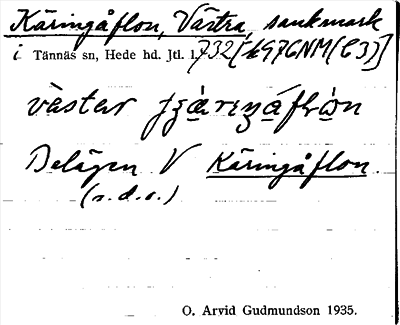 Käringåflon, Västra, sankmark
i Tännäs sn, Hede hd. Jtl. l. 732[1976NM(C3)]
västar
Belägen V Käringåflon.
(s.d.o.)
O. Arvid Gudmundson 1935.